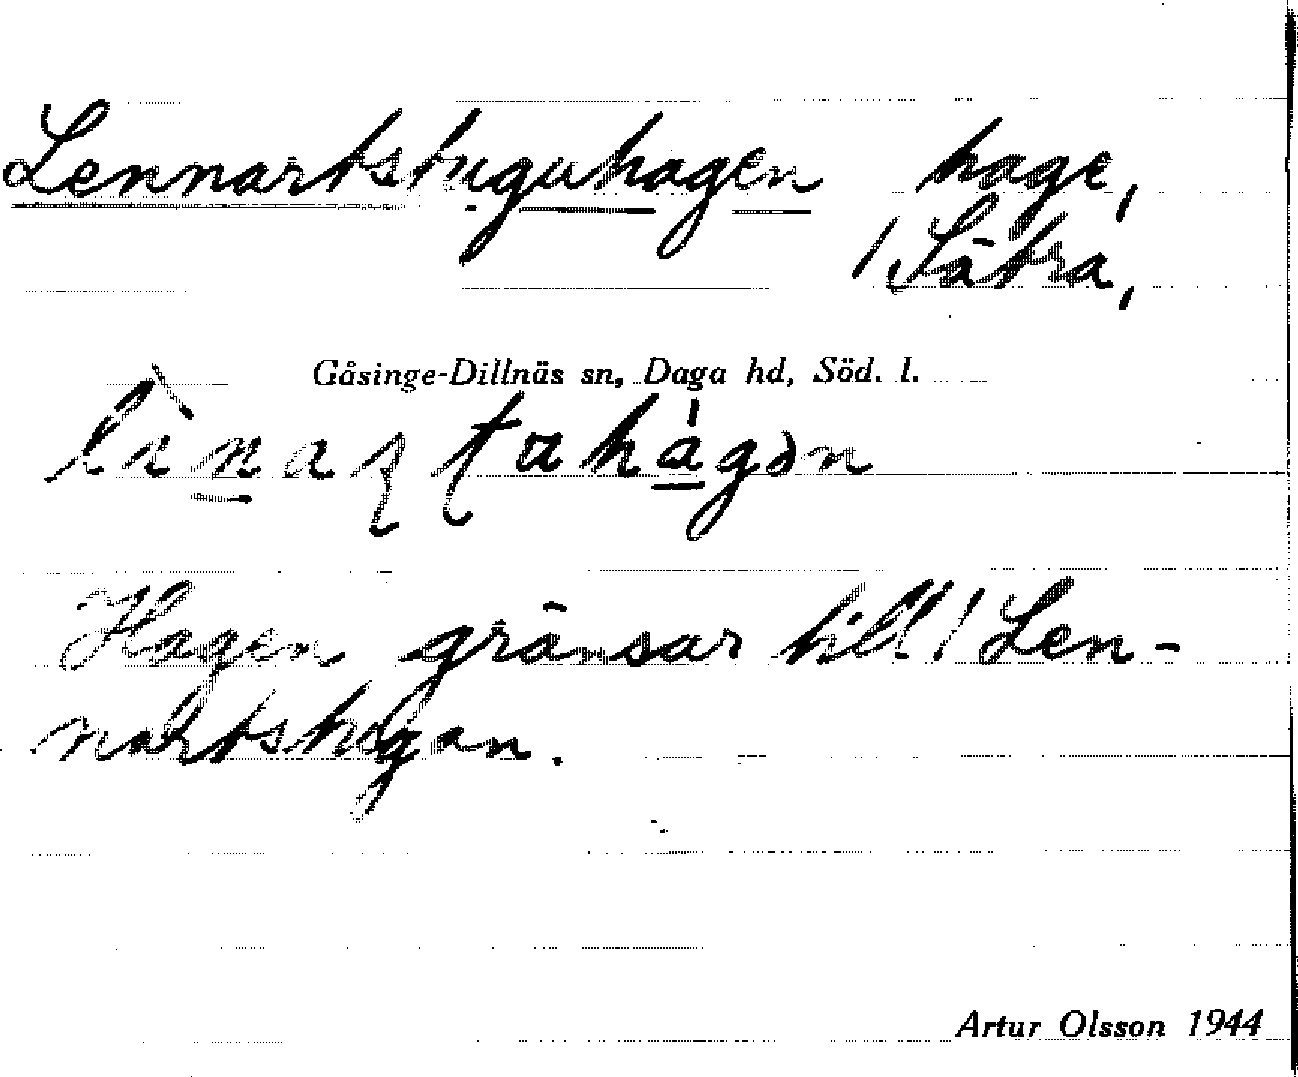 Lennartstuguhagen hage,
/ Sätra,
Gåsinge-Dillnäs sn, Daga hd, Söd. l.
Hagen gränsar till / Len-
nartshagan.
Artur Olsson 1944